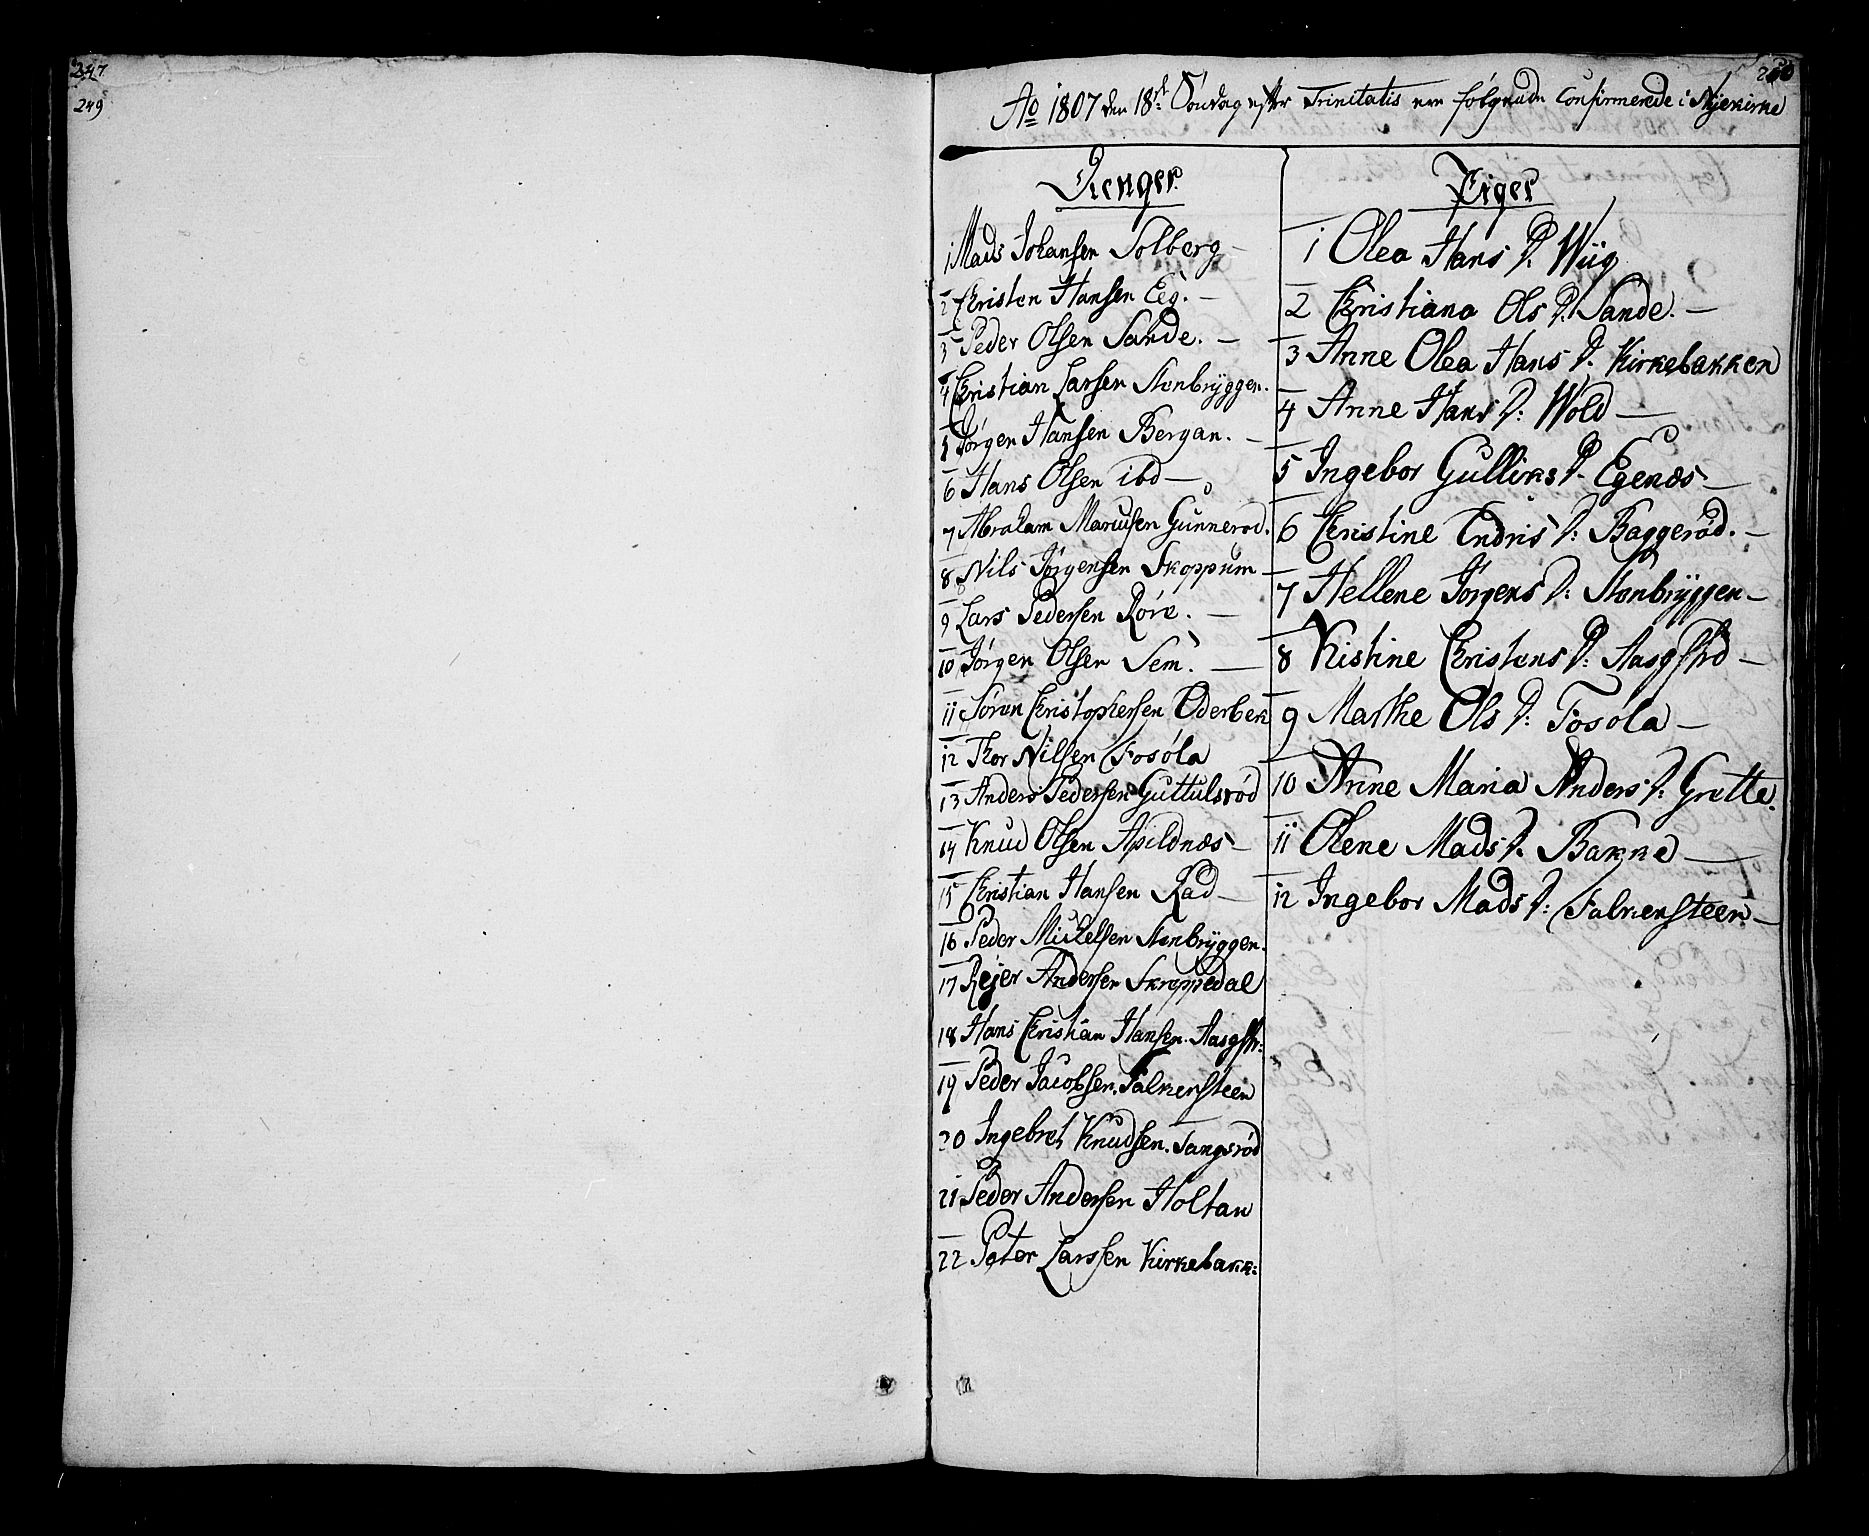 247
249
Ao 1807 den 18de Söndag efter Trinitatis ere fölgende Confirmerede i Nyekirke
Drenger
1 Mads Johansen Solberg
2 Christen Hansen Eeg.
3 Peder Olsen Sande.
4 Christian Larsen Stenbryggen.
5 Jørgen Hansen Bergan.
6 Hans Olsen ibd
7 Abraham Marcusen Gunnerod.
8 Nils Jørgensen Skoppum
9 Lars Pedersen Röre.
10 Jørgen Olsen Sem.
11 Sören Christophersen Oderbek
12 Thor Nilsen Fosöla
13 Anders Pedersen Guttulsröd
14 Knud Olsen Apildnæs
15 Christian Hansen Rad
16 Peder Mickelsen Stenbryggen.
17 Rejer Andersen Skroppedal
18 Hans Christian Hansen Aasgstr:
19 Peder Jacobsen. Falkensteen
20 Ingebret Knudsen. Tangsröd
21 Peder Andersen Holtan
22 Peter Larssen Kirkebakk:
Piger
1 Olea Hans D. Wiig
2 Christiana Ols D. Sande.
3 Anne Olea Hans D. Kirkebakken
4 Anne Hans D: Wold
5 Ingebor Gulliks D. Egenæs
6 Christine Endris D: Baggeröd.
7 Hellene Jörgens D: Stenbryggen
8 Kistine Christens D: Aasgstrd
9 Marthe Ols D: Fosöla
10 Anne Maria Anders D: Grette.
11 Olene Mads D. Bakke
12 Ingebor Mads D: Falkensteen